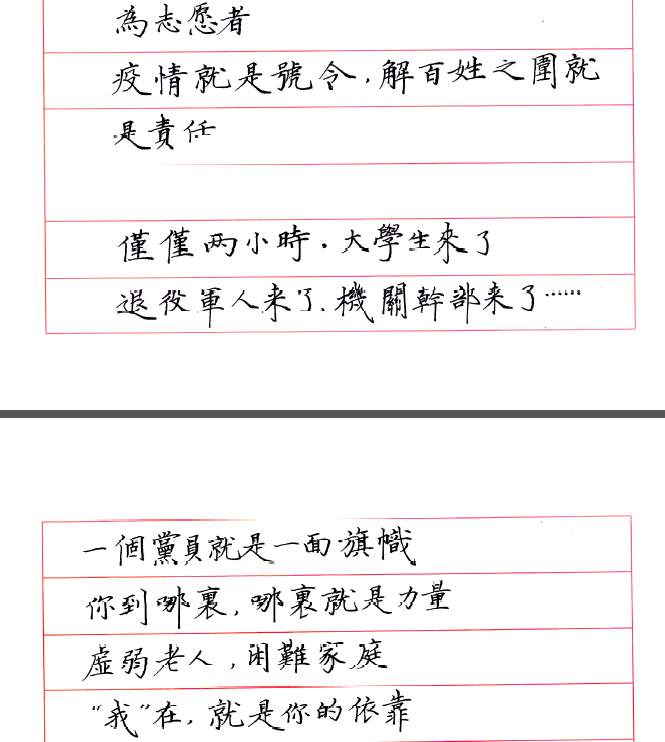 為志愿者
疫情就是號令,解百姓之圍就
是責任
僅僅两小時.大學生來了
退役軍人来了.機關幹部来了……
一個黨員就是一面旗幟
你到哪裏,哪裏就是力量
虛弱老人,困難家庭
“我”在,就是你的依靠